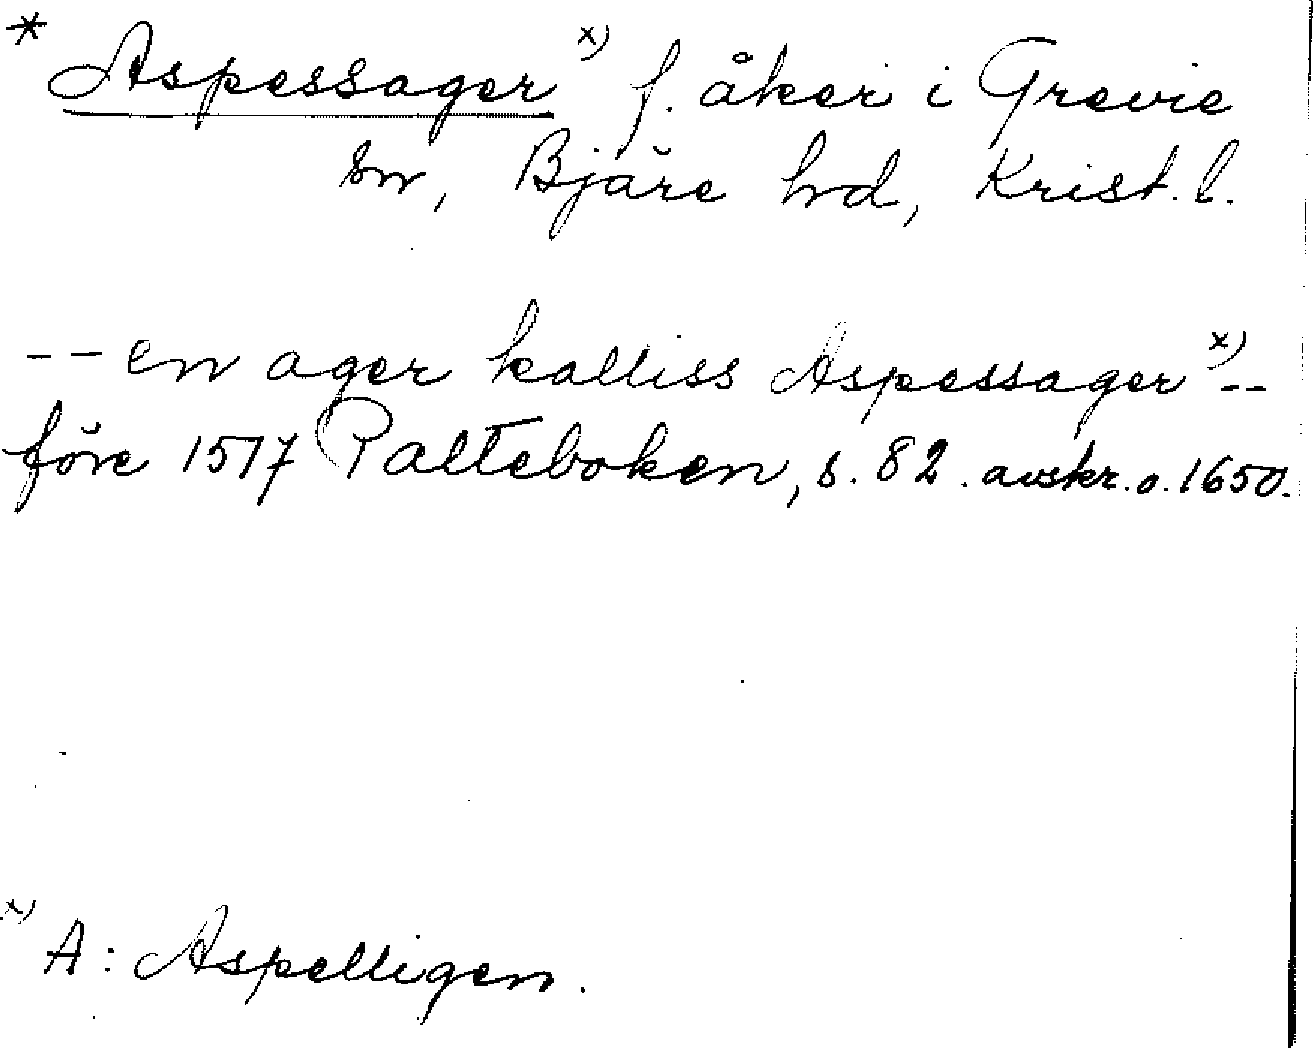 * Aspessager x) f. åker i Grevie
sn, Bjäre hd, Krist. l.
-- en ager kalliss Aspessager x) --
före 1517 Palteboken, s. 82. avskr. o. 1650.
x) A: Aspelligen.